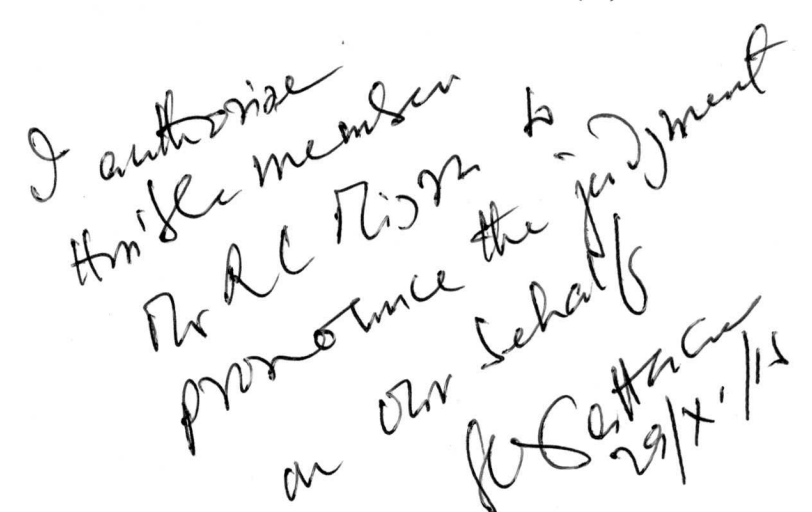 I authorise
Hon'ble member
Mr R C Misra to
pronounce the judgment
on our behalf
29/XI/15